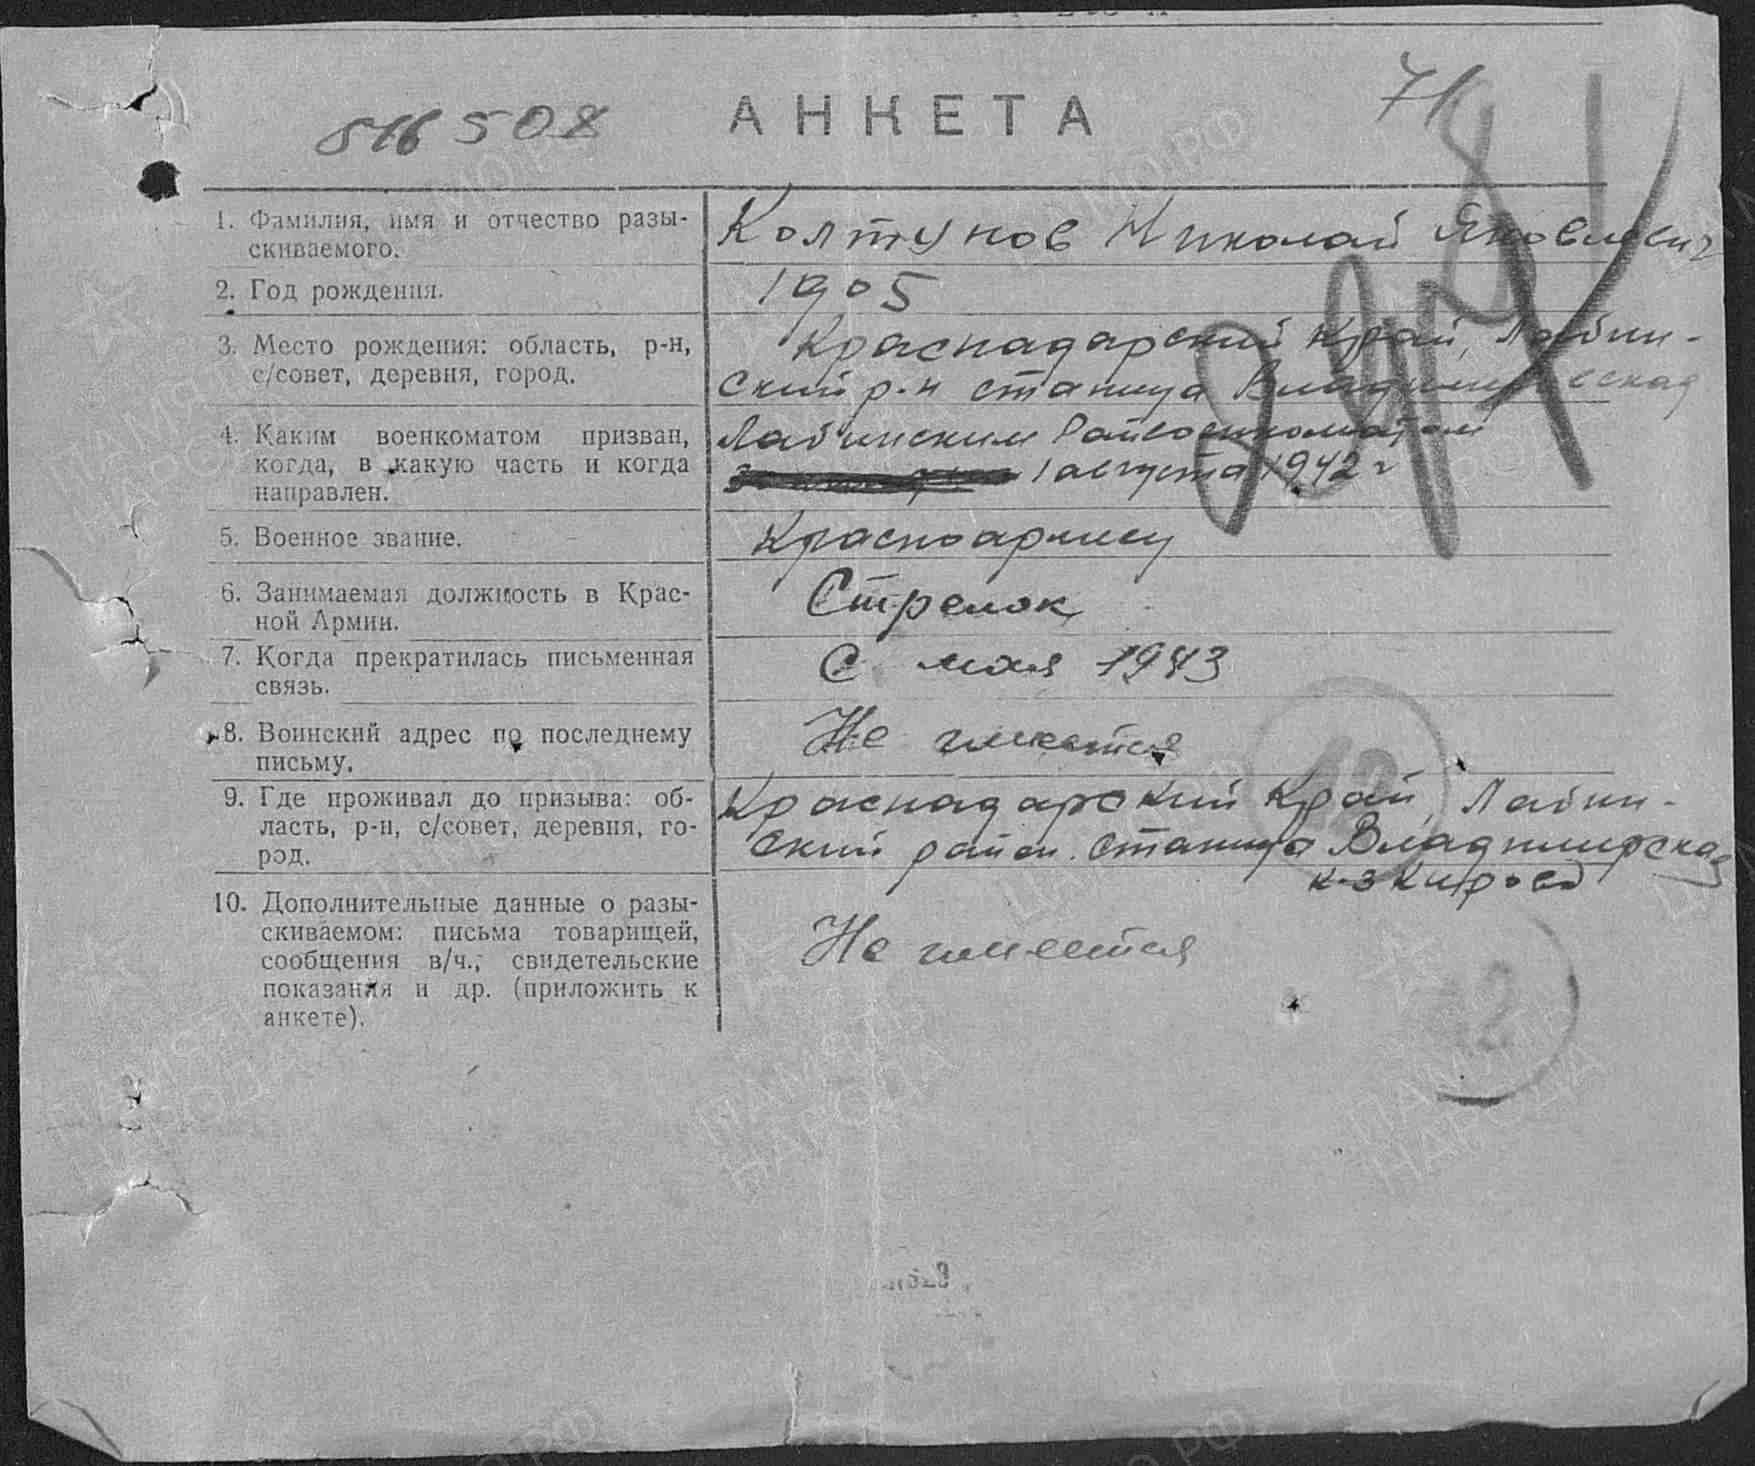 516508
АНКЕТА
71
1. Фамилия, имя и отчество разы-
скиваемого.
Колтунов Николай Яковлевич
2. Год рождения.
1905
3. Место рождения: область, р-н,
с/совет, деревня, город.
Краснадарский край, Лабин-
ский р-н станица Владимирская
4. Каким военкоматом призван,
когда, в какую часть и когда
направлен.
Лабинским Райвоенкоматом
1 августа 1942 г
5. Военное звание.
Красноармеец
6. Занимаемая должность в Крас-
ной Армии.
Стрелок
7. Когда прекратилась письменная
связь.
С мая 1943
8. Воинский адрес по последнему
письму.
Не имеется
9. Где проживал до призыва: об-
ласть, р-н, с/совет, деревня, го-
род.
Краснадарский Край, Лабин-
ский район. станица Владимирская
к-з Кирова
10. Дополнительные данные о разы-
скиваемом: письма товарищей,
сообщения в/ч., свидетельские
показания и др. (приложить к
анкете).
Не имеется
12
12
ПАМЯТЬ
НАРОДА